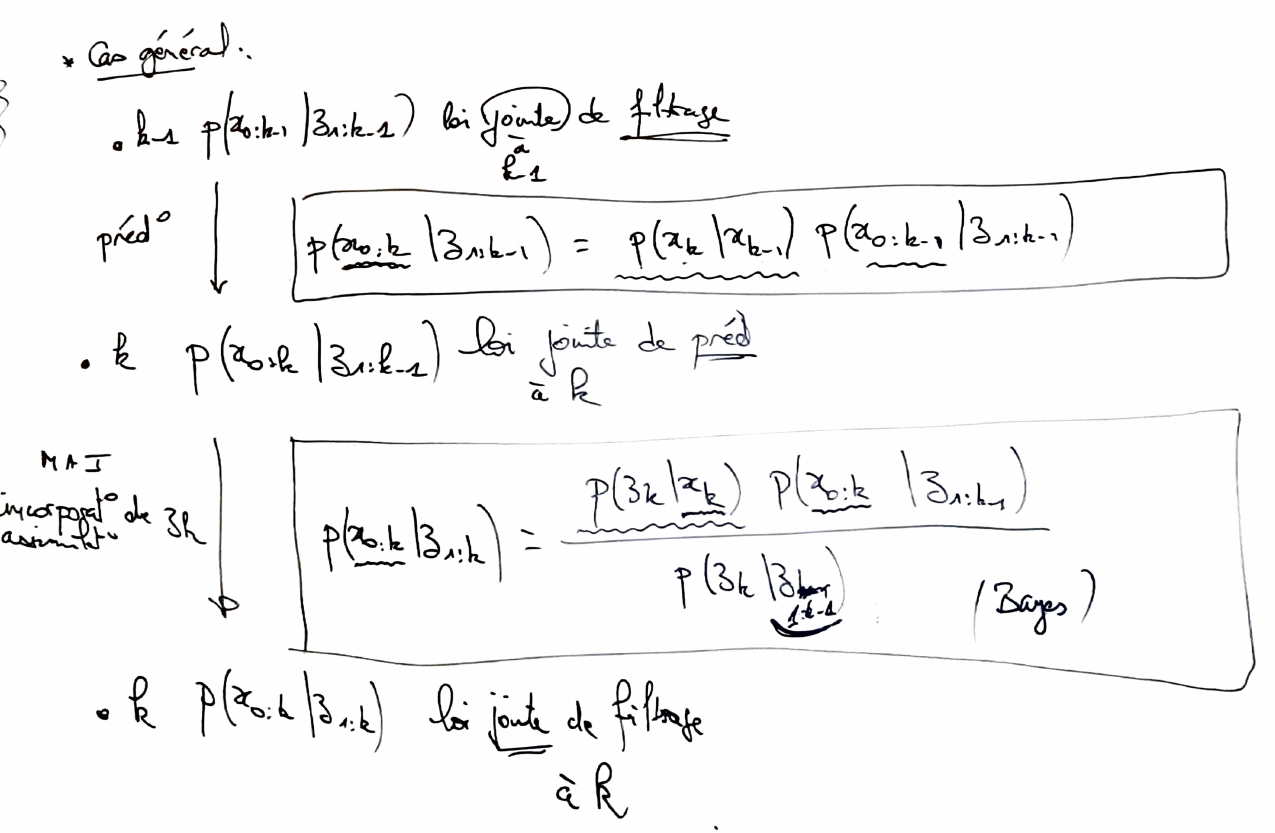 * Cas général :
• k-1 p(x0:k-1 | z1:k-1) loi jointe de filtrage
à
k-1
préd° p(x0:k | z1:k-1) = p(xk | xk-1) p(x0:k-1 | z1:k-1)
• k p(x0:k | z1:k-1) loi jointe de préd
à k
MAJ
incorporat° de zk
assimilat°
p(x0:k | z1:k) = p(zk | xk) p(x0:k | z1:k-1)
p(zk | z1:k-1) (Bayes)
• k p(x0:k | z1:k) loi jointe de filtrage
à k